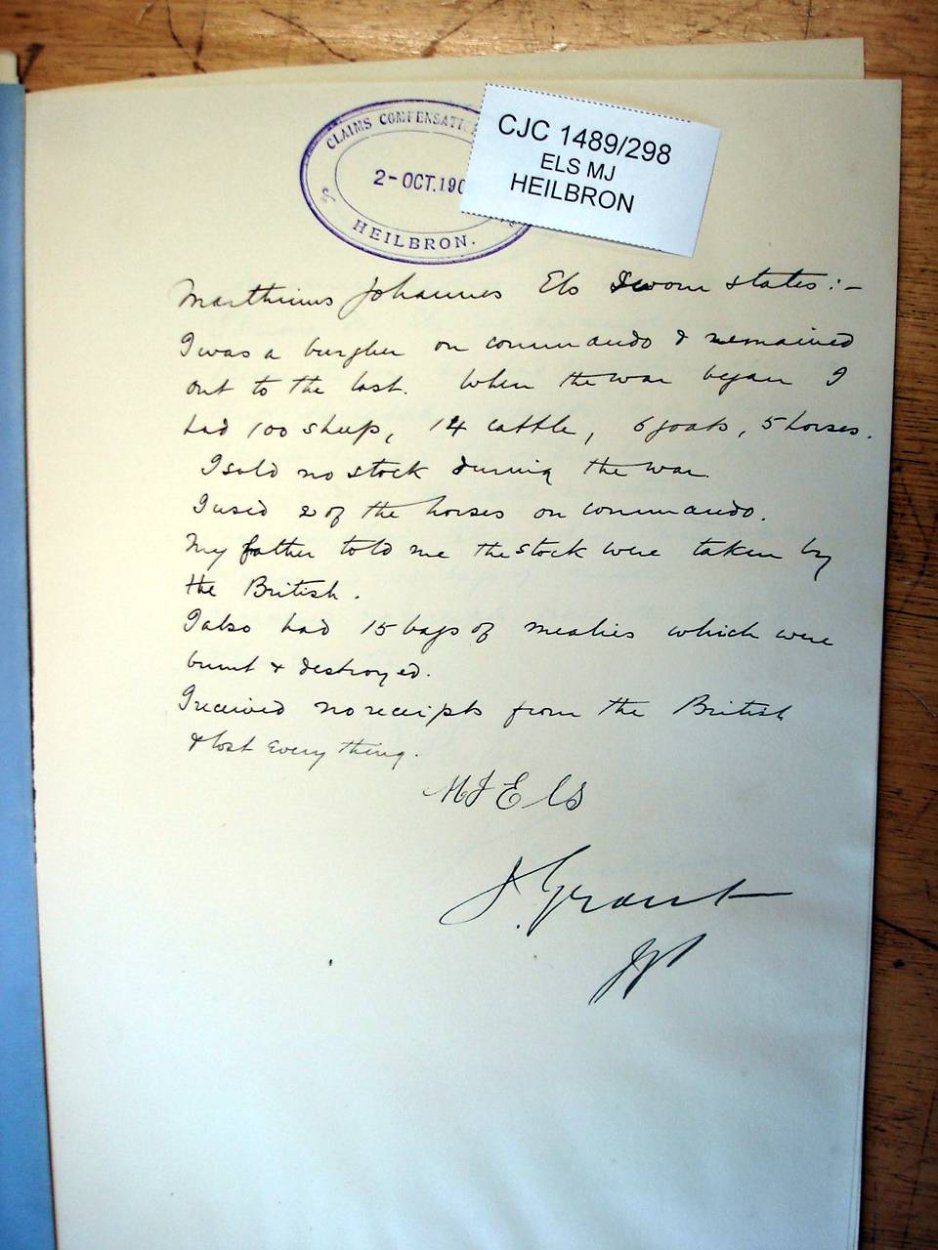 CLAIMS COMPENSATI
2-OCT.190
HEILBRON.
CJC 1489/298
ELS MJ
HEILBRON
Marthinus Johannes Els Sworn states:-
I was a burgher on commando & remained
out to the last. When the war began I
had 100 sheep, 14 cattle, 6 goats, 5 horses.
I sold no stock during the war.
I used 2 of the horses on commando.
My father told me the stock were taken by
the British.
I also had 15 bags of mealies which were
burnt & destroyed.
I received no receipts from the British
& lost everything.
MJ Els
J. Grant
JP